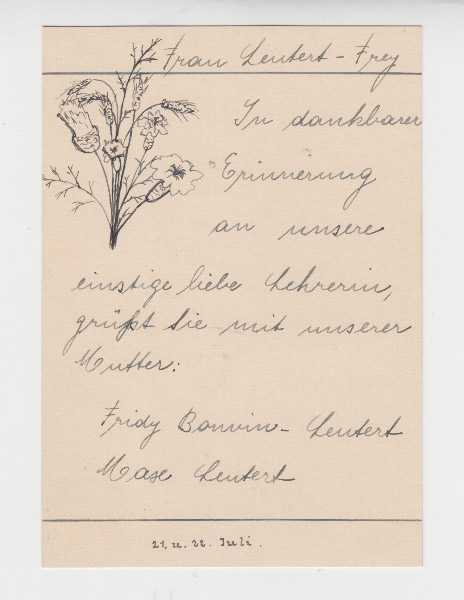 Frau Leutert - Frey
In dankbarer
Erinnerung
an unsere
einstige liebe Lehrerin,
grüßt Sie mit unserer
Mutter:
Fridy Bonvin - Leutert
Mase Leutert
21. u. 22. Juli.